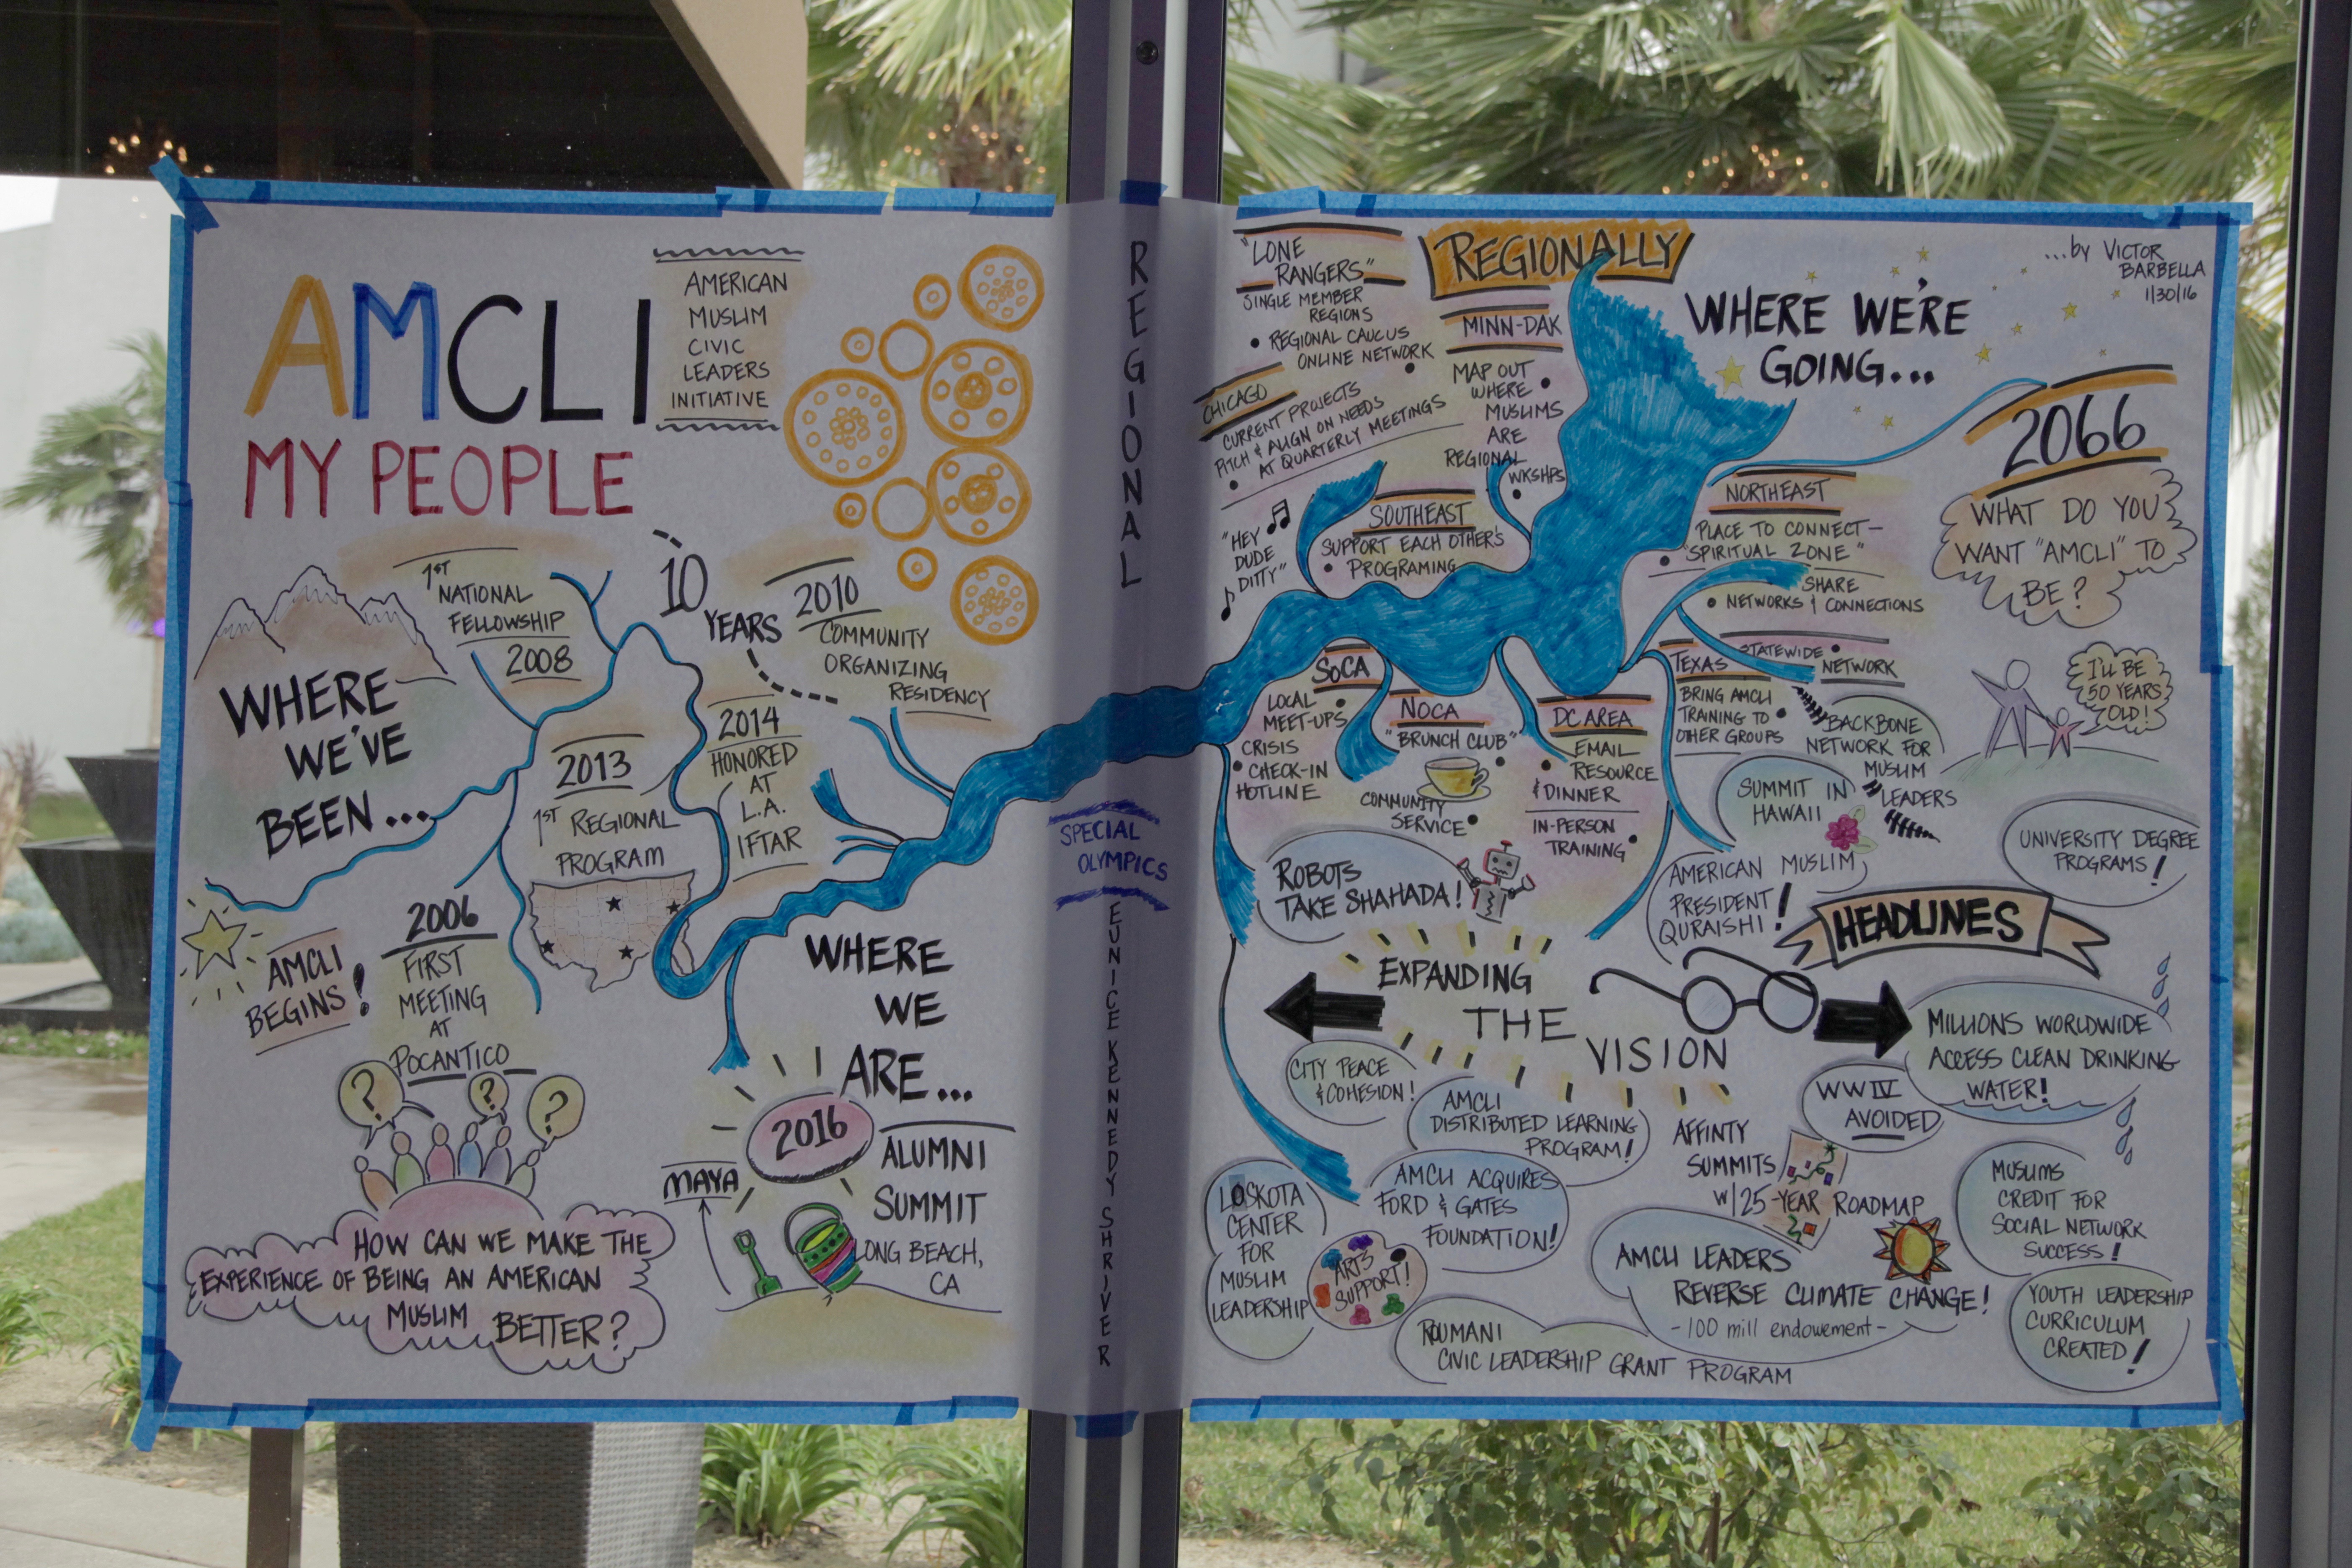 AMCLI
MY PEOPLE
AMERICAN
MUSLIM
CIVIC
LEADERS
INITIATIVE
WHERE
WE'VE
BEEN...
1ST
NATIONAL
FELLOWSHIP
2008
10
YEARS
2010
COMMUNITY
ORGANIZING
RESIDENCY
2013
1ST REGIONAL
PROGRAM
2014
HONORED
AT
L.A.
IFTAR
AMCLI
BEGINS!
2006
FIRST
MEETING
AT
POCANTICO
? ? ?
HOW CAN WE MAKE THE
EXPERIENCE OF BEING AN AMERICAN
MUSLIM BETTER?
WHERE
WE
ARE...
2016
ALUMNI
SUMMIT
LONG BEACH,
CA
MAYA
REGIONAL
SPECIAL
OLYMPICS
EUNICE KENNEDY SHRIVER
"LONE
RANGERS"
SINGLE MEMBER
REGIONS
• REGIONAL CAUCUS
ONLINE NETWORK
CHICAGO
CURRENT PROJECTS
PITCH & ALIGN ON NEEDS
AT QUARTERLY MEETINGS
REGIONALLY
MINN-DAK
MAP OUT
WHERE
MUSLIMS
ARE
REGIONAL
WKSHPS
"HEY
DUDE
DITTY"
SOUTHEAST
SUPPORT EACH OTHER'S
• PROGRAMING
WHERE WE'RE
GOING...
...by VICTOR
BARBELLA
1/30/16
2066
WHAT DO YOU
WANT "AMCLI" TO
BE?
I'LL BE
50 YEARS
OLD!
NORTHEAST
PLACE TO CONNECT-
• "SPIRITUAL ZONE"
SHARE
• NETWORKS & CONNECTIONS
TEXAS
STATEWIDE •
NETWORK
BRING AMCLI
TRAINING TO •
OTHER GROUPS
BACKBONE
NETWORK FOR
MUSLIM
LEADERS
SOCA
LOCAL •
MEET-UPS
CRISIS
• CHECK-IN
HOTLINE
NOCA
"BRUNCH CLUB"
COMMUNITY
SERVICE •
DC AREA
EMAIL
• RESOURCE
& DINNER
IN-PERSON
TRAINING •
SUMMIT IN
HAWAII
UNIVERSITY DEGREE
PROGRAMS!
ROBOTS
TAKE SHAHADA!
AMERICAN MUSLIM
PRESIDENT
QURAISHI!
HEADLINES
EXPANDING
THE
VISION
MILLIONS WORLDWIDE
ACCESS CLEAN DRINKING
WATER!
CITY PEACE
& COHESION!
AMCLI
DISTRIBUTED LEARNING
PROGRAM!
WW IV
AVOIDED
AFFINTY
SUMMITS
W/ 25-YEAR ROADMAP
LOSKOTA
CENTER
FOR
MUSLIM
LEADERSHIP
AMCLI ACQUIRES
FORD & GATES
FOUNDATION!
ARTS
SUPPORT!
AMCLI LEADERS
REVERSE CLIMATE CHANGE!
-100 mill endowement-
MUSLIMS
CREDIT FOR
SOCIAL NETWORK
SUCCESS!
ROUMANI
CIVIC LEADERSHIP GRANT PROGRAM
YOUTH LEADERSHIP
CURRICULUM
CREATED!